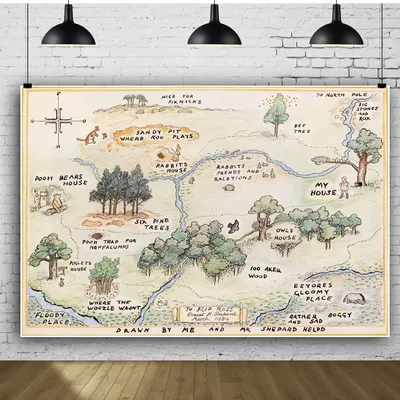 NICE FOR
PIKNICKS
TO NORTH POLE
BIG
STONES
AND
ROX
SANDY PIT
WHERE ROO PLAYS
BEE
TREE
RABBITS
HOUSE
RABBITS
FRENDS AND
RALETIONS
POOH BEARS
HOUSE
MY
HOUSE
SIX PINE
TREES
OWLS
HOUSE
POOH TRAP FOR
HEFFALUMPS
PIGLETS
HOUSE
100 AKER
WOOD
EEYORES
GLOOMY
PLACE
WHERE THE
WOOZLE WASNT
FLOODY
PLACE
RATHER BOGGY
AND SAD
DRAWN BY ME AND MR SHEPARD HELPD